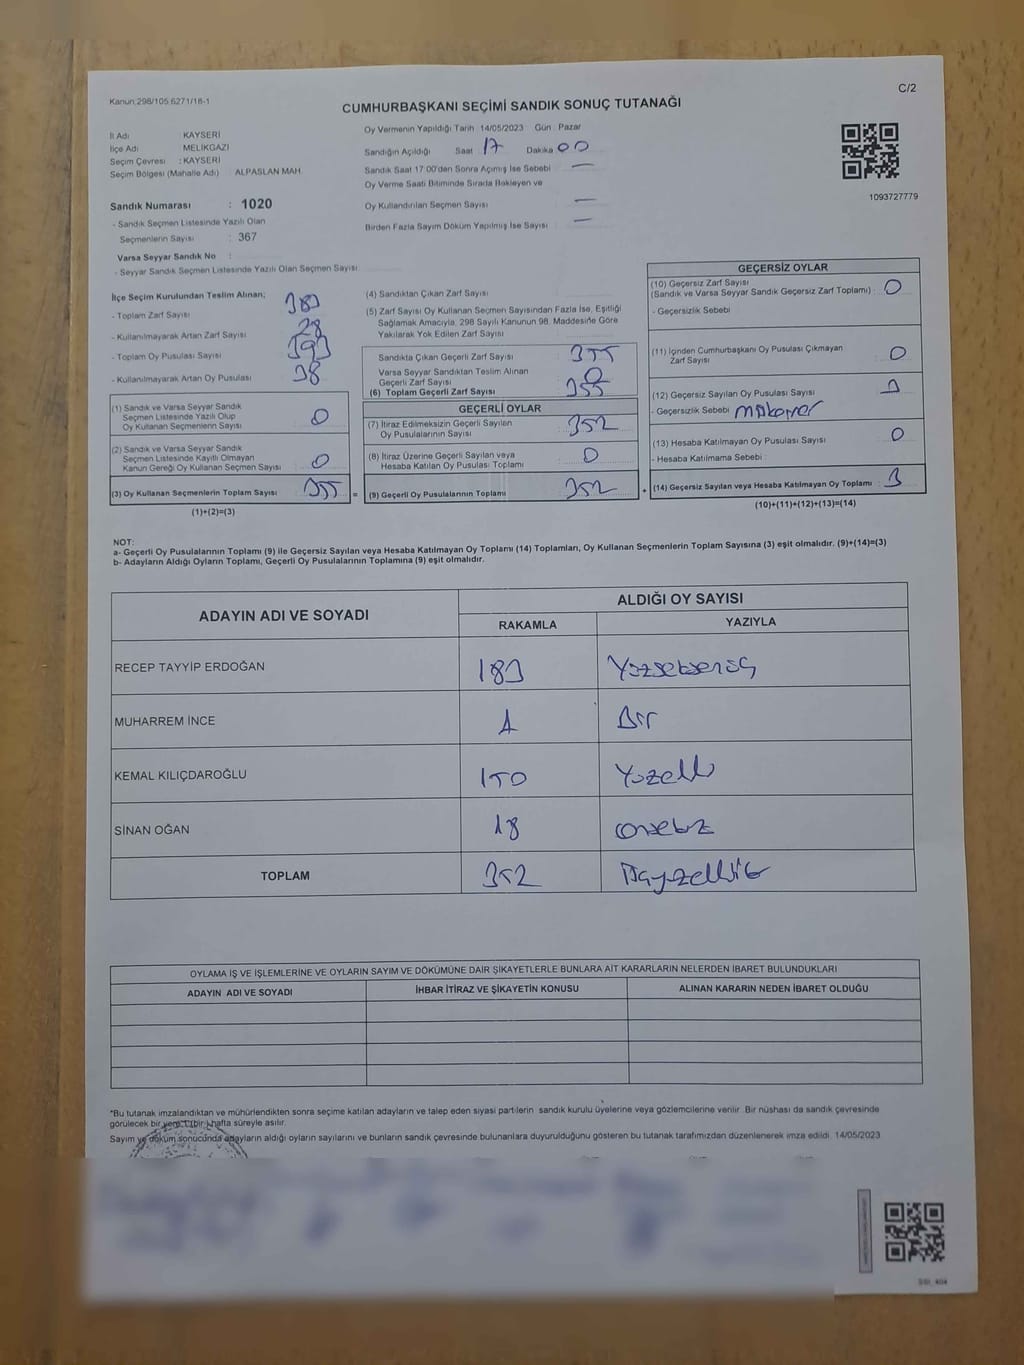 Kanun:298/105.6271/18-1
C/2
CUMHURBAŞKANI SEÇİMİ SANDIK SONUÇ TUTANAĞI
İl Adı KAYSERİ
İlçe Adı MELİKGAZİ
Seçim Çevresi : KAYSERİ
Seçim Bölgesi (Mahalle Adı) ALPASLAN MAH.
Oy Vermenin Yapıldığı Tarih 14/05/2023 Gün : Pazar
Sandığın Açıldığı Saat 17 Dakika 00
Sandık Saat 17:00'den Sonra Açımış İse Sebebi : —
Oy Verme Saati Bitiminde Sırada Bekleyen ve
Oy Kullandırılan Seçmen Sayısı : —
Birden Fazla Sayım Döküm Yapılmış İse Sayısı : —
1093727779
Sandık Numarası : 1020
- Sandık Seçmen Listesinde Yazılı Olan
Seçmenlerin Sayısı : 367
Varsa Seyyar Sandık No :
- Seyyar Sandık Seçmen Listesinde Yazılı Olan Seçmen Sayısı :
İlçe Seçim Kurulundan Teslim Alınan;
- Toplam Zarf Sayısı : 383
- Kullanılmayarak Artan Zarf Sayısı : 28
- Toplam Oy Pusulası Sayısı : 393
- Kullanılmayarak Artan Oy Pusulası : 38
(1) Sandık ve Varsa Seyyar Sandık
Seçmen Listesinde Yazılı Olup
Oy Kullanan Seçmenlerin Sayısı : 0
(2) Sandık ve Varsa Seyyar Sandık
Seçmen Listesinde Kayıtlı Olmayan
Kanun Gereği Oy Kullanan Seçmen Sayısı : 0
(3) Oy Kullanan Seçmenlerin Toplam Sayısı : 355
(1)+(2)=(3)
(4) Sandıktan Çıkan Zarf Sayısı :
(5) Zarf Sayısı Oy Kullanan Seçmen Sayısından Fazla İse, Eşitliği
Sağlamak Amacıyla, 298 Sayılı Kanunun 98. Maddesine Göre
Yakılarak Yok Edilen Zarf Sayısı :
Sandıkta Çıkan Geçerli Zarf Sayısı : 355
Varsa Seyyar Sandıktan Teslim Alınan
Geçerli Zarf Sayısı : 0
(6) Toplam Geçerli Zarf Sayısı : 355
GEÇERLİ OYLAR
(7) İtiraz Edilmeksizin Geçerli Sayılan
Oy Pusulalarının Sayısı : 352
(8) İtiraz Üzerine Geçerli Sayılan veya
Hesaba Katılan Oy Pusulası Toplamı : 0
(9) Geçerli Oy Pusulalarının Toplamı : 352
GEÇERSİZ OYLAR
(10) Geçersiz Zarf Sayısı
(Sandık ve Varsa Seyyar Sandık Geçersiz Zarf Toplamı) : 0
- Geçersizlik Sebebi :
(11) İçinden Cumhurbaşkanı Oy Pusulası Çıkmayan
Zarf Sayısı : 0
(12) Geçersiz Sayılan Oy Pusulası Sayısı : 3
- Geçersizlik Sebebi :
(13) Hesaba Katılmayan Oy Pusulası Sayısı : 0
- Hesaba Katılmama Sebebi :
(14) Geçersiz Sayılan veya Hesaba Katılmayan Oy Toplamı : 3
(10)+(11)+(12)+(13)=(14)
NOT:
a- Geçerli Oy Pusulalarının Toplamı (9) ile Geçersiz Sayılan veya Hesaba Katılmayan Oy Toplamı (14) Toplamları, Oy Kullanan Seçmenlerin Toplam Sayısına (3) eşit olmalıdır. (9)+(14)=(3)
b- Adayların Aldığı Oyların Toplamı, Geçerli Oy Pusulalarının Toplamına (9) eşit olmalıdır.
ADAYIN ADI VE SOYADI ALDIĞI OY SAYISI
RAKAMLA YAZIYLA
RECEP TAYYİP ERDOĞAN 183 Yüzseksenüç
MUHARREM İNCE 1 Bir
KEMAL KILIÇDAROĞLU 150 Yüzelli
SİNAN OĞAN 18 onsekiz
TOPLAM 352
OYLAMA İŞ VE İŞLEMLERİNE VE OYLARIN SAYIM VE DÖKÜMÜNE DAİR ŞİKAYETLERLE BUNLARA AİT KARARLARIN NELERDEN İBARET BULUNDUKLARI
ADAYIN ADI VE SOYADI İHBAR İTİRAZ VE ŞİKAYETİN KONUSU ALINAN KARARIN NEDEN İBARET OLDUĞU
*Bu tutanak imzalandıktan ve mühürlendikten sonra seçime katılan adayların ve talep eden siyasi partilerin sandık kurulu üyelerine veya gözlemcilerine verilir. Bir nüshası da sandık çevresinde
görülecek bir yere 1 (bir) hafta süreyle asılır.
Sayım ve döküm sonucunda adayların aldığı oyların sayılarını ve bunların sandık çevresinde bulunanlara duyurulduğunu gösteren bu tutanak tarafımızdan düzenlenerek imza edildi. 14/05/2023